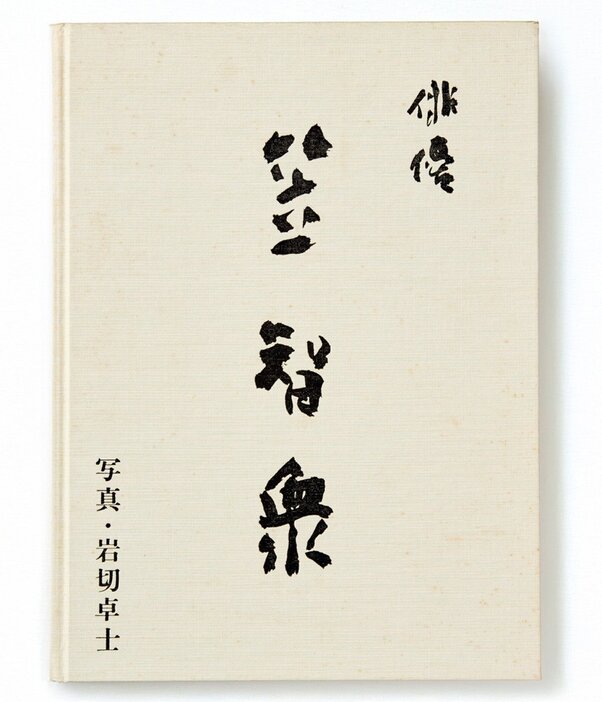 俳優
笠智衆
写真・岩切卓士